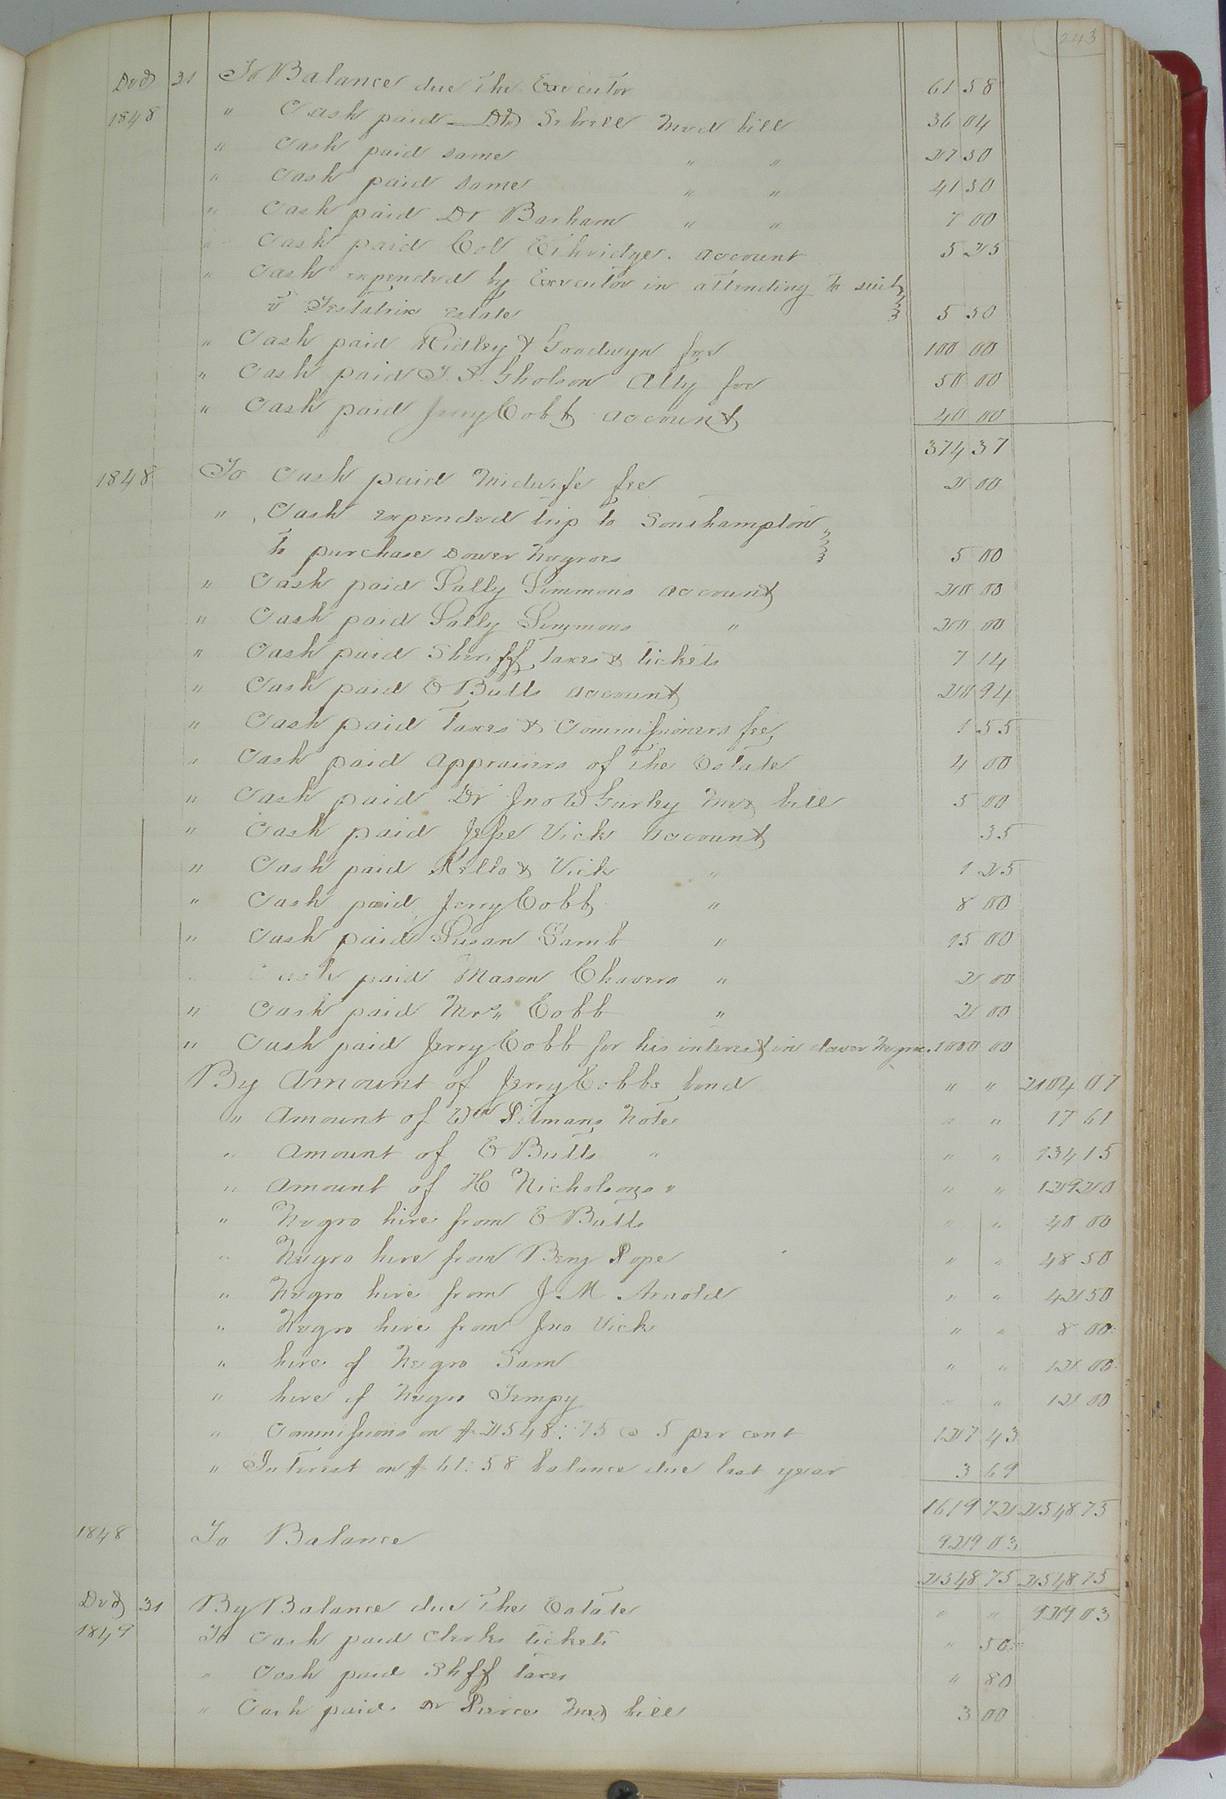 243
Decr 31 To Balance due the Executor 61 58
1848 " Cash paid Dr Sebrell Med bill 36 04
" Cash paid same " " 27 50
" Cash paid same " " 41 50
" Cash paid Dr Barham " " 7 00
" Cash paid Col Ethridge account 5 25
" Cash expended by Executor in attending to suits
& Testatrix Estate 5 50
" Cash paid Ridley & Goodwyn fee 100 00
" Cash paid T. S. Gholson Atty fee 50 00
" Cash paid Jerry Cobb account 40 00
374 37
1848 To Cash paid Midwife fee 2 00
" Cash expended trip to Southampton
to purchase Dower Negroes 5 00
" Cash paid Sally Simmons account 20 00
" Cash paid Sally Simmons " 20 00
" Cash paid Sheriff Taxes & tickets 7 14
" Cash paid E Butts account 20 94
" Cash paid Taxes & Commissioners fee 1 55
" Cash paid Appraisers of the Estate 4 00
" Cash paid Dr Jno W Gurley Med bill 5 00
" Cash paid Jesse Vick account 35
" Cash paid Kello & Vick " 1 25
" Cash paid Jerry Cobb " 8 00
" Cash paid Susan Lamb " 15 00
Cash paid Mason Chavers " 2 00
" Cash paid Mrs Cobb " 2 00
" Cash paid Jerry Cobb for his interest in dower Negroes 1000 00
By Amount of Jerry Cobbs bond " " 2104 07
" Amount of Wm Pitmans Note " " 17 61
" Amount of E Butts " " " 134 15
" Amount of H Nicholsons " " " 129 20
" Negro hire from E Butts " " 40 00
" Negro hire from Benj Pope " " 48 50
" Negro hire from J. M. Arnold " " 42 50
" Negro hire from Jno Vick " " 8 00
" hire of Negro Sam " " 12 00
" hire of Negro Tempy " " 12 00
" Commissions on $2548:75 @ 5 per cent 127 43
" Interest on $61:58 balance due last year 3 69
1619 72 2548 75
1848 To Balance 929 03
2548 75 2548 75
Decr 31 By Balance due the Estate " " 929 03
1849 To Cash paid Clerks tickets " 50
" Cash paid Shff Taxes " 80
" Cash paid Dr Pierce Med bill 3 00